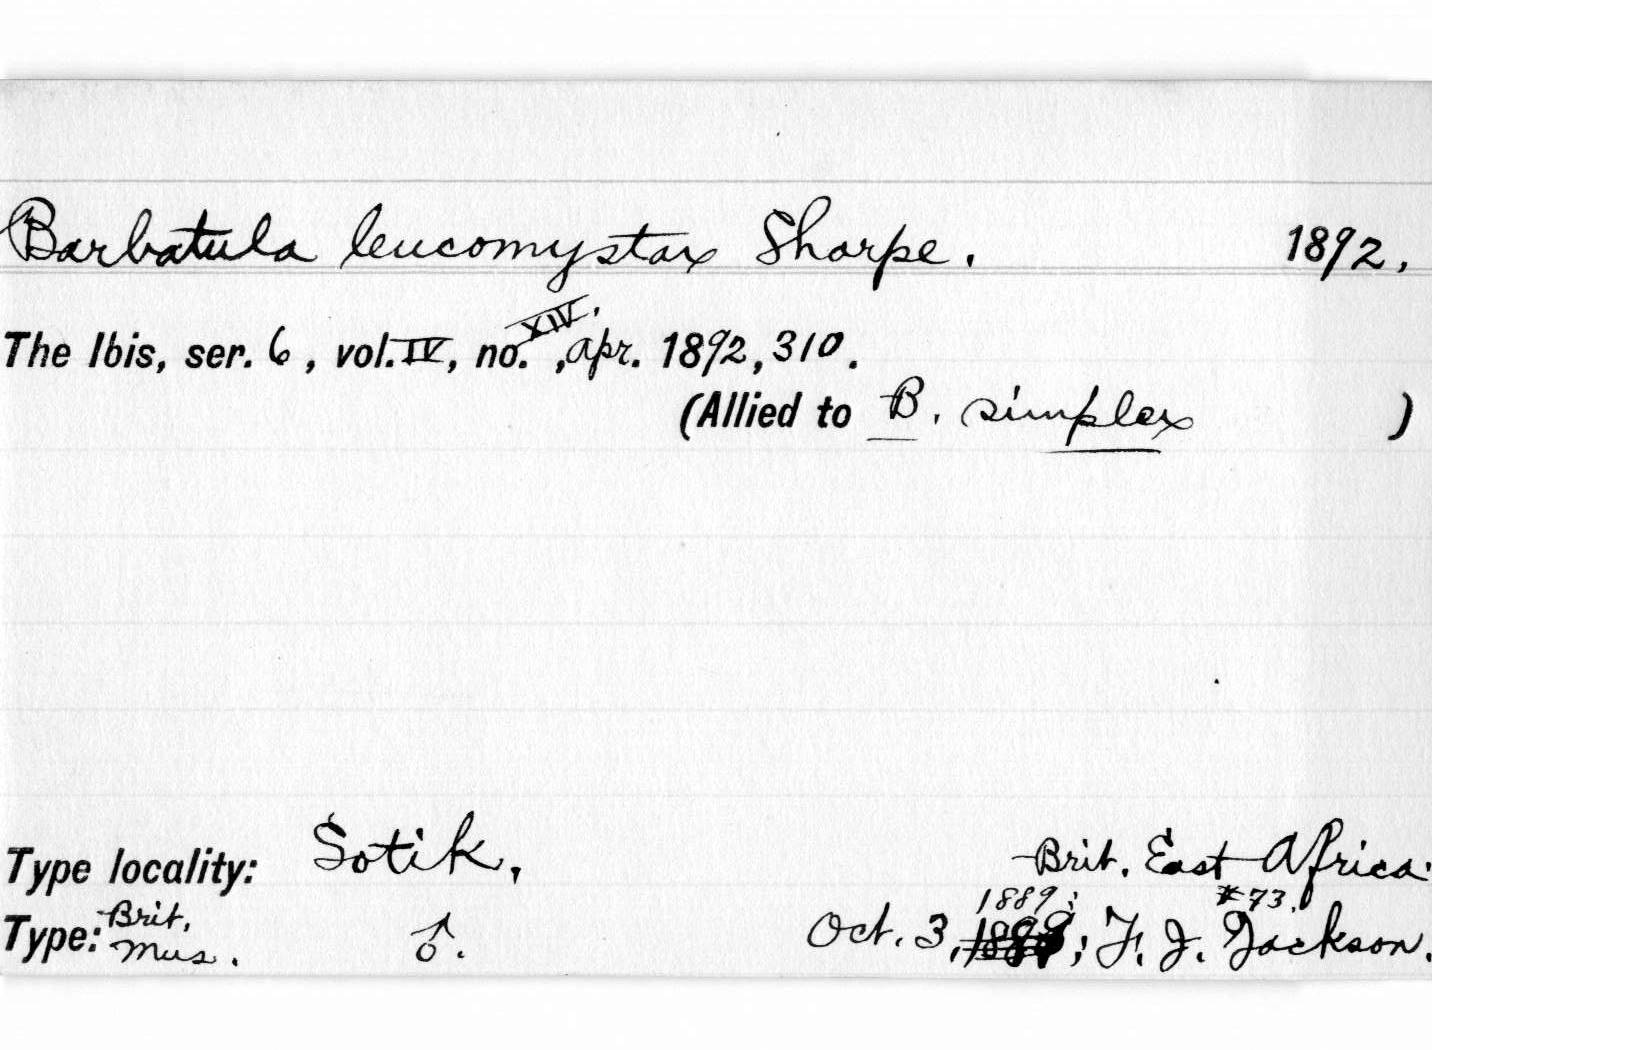 Barbatula leucomystax Sharpe. 1892.
XIV.
The Ibis, ser. 6, vol. IV, no. , Apr. 1892, 310.
(Allied to B. simplex )
Type locality: Sotik, Brit. East Africa.
1889; #73.
Type: Brit. Mus. ♂. Oct. 3, ; F. J. Jackson.